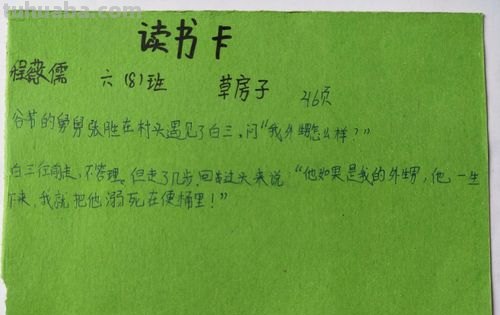 tuhuaba.com
读书卡
程薇儒 六(8)班 草房子 216页
谷节的舅舅张胜在村头遇见了白三,问"我外甥怎么样?"
白三往前走,不答理,但走了几步,回过头来说:"他如果是我的外甥,他一生
下来,我就把他溺死在便桶里!"